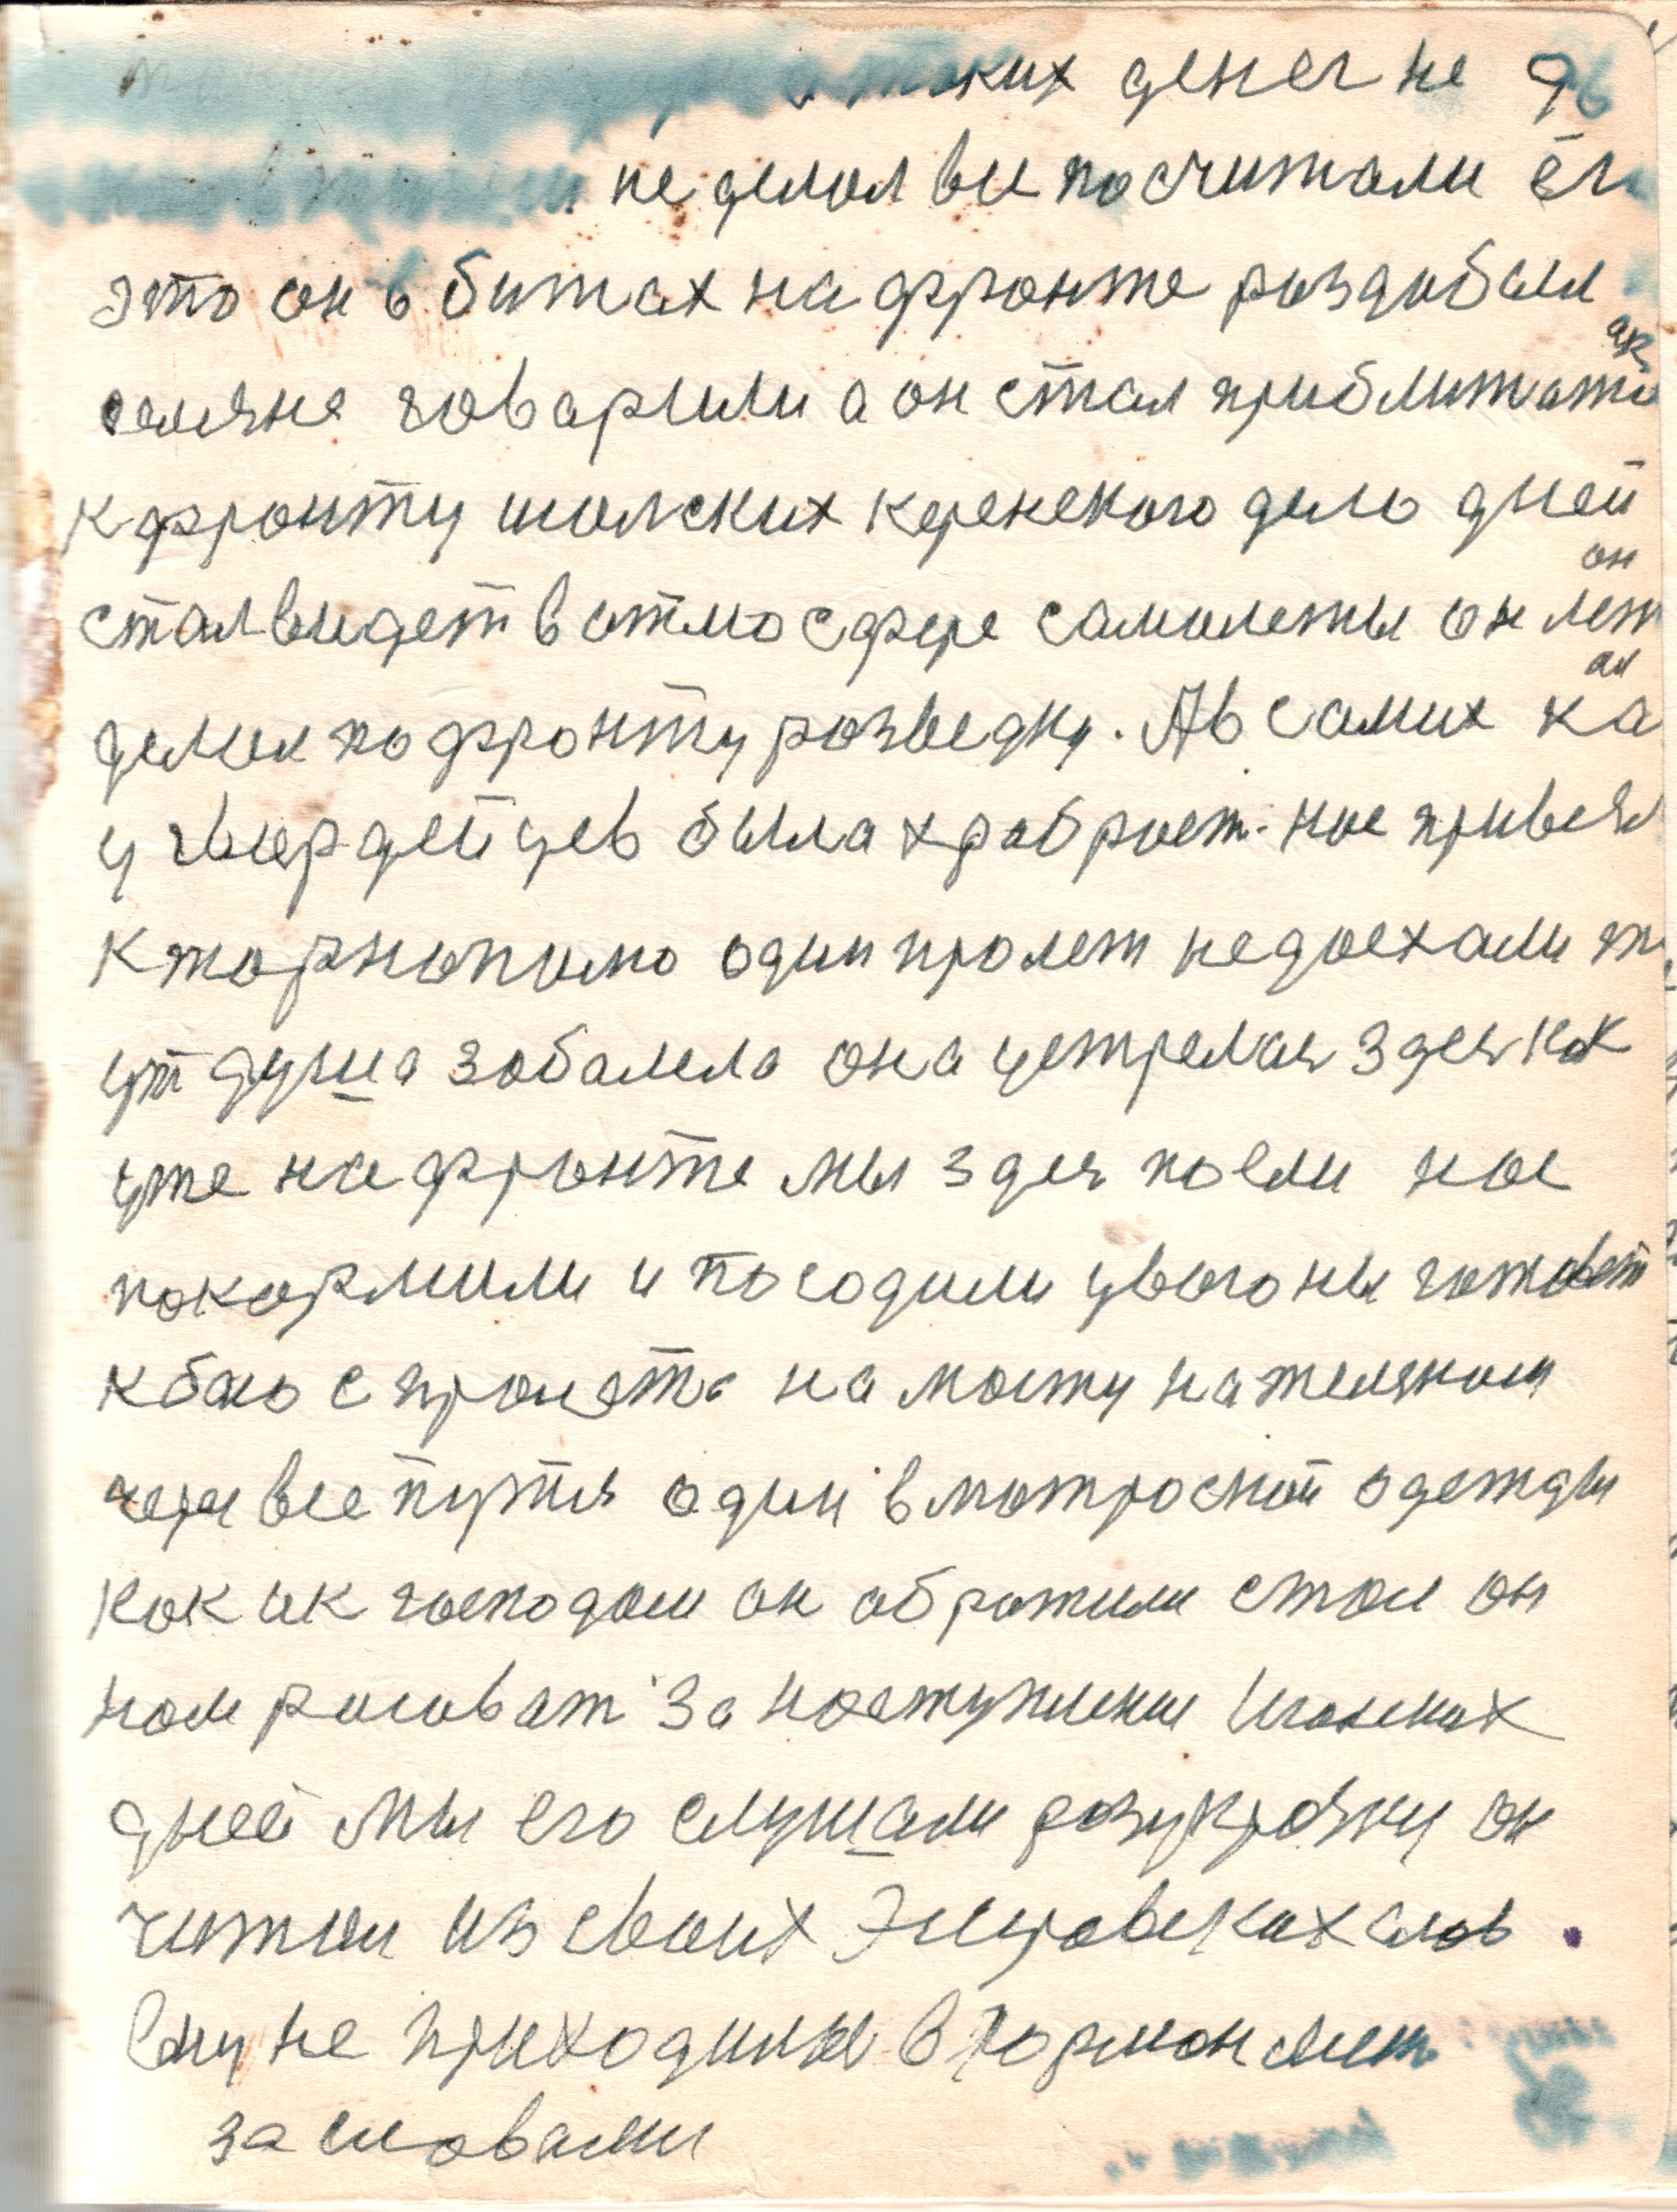 таких денег не
не делал все посчитали ег
это он в битах на фронте роздобыл
селяне говарили а он стал приближать
к фронту июлских керенского дель дней
стал видет в атмосфере самолеты он лет
ал
делал по фронту розведку. Ав самих ка
у гвардейцев была храброст. нас привезл
к тарнополю один пролет недоехали т
ут душа заболела она устрелась здеся как
уже на фронте мы здеся поели нас
покармили и посодили у вагоны готовит
к бою с проезта на мосту на желязном
через все путтия один в матроской одежды
как ик господам он обратили стал он
нам росоват за наступление Июнских
дней мы его слушали розукрозку он
читал из своих Эсеровских слов.
Ему не приходилос в карман лест
за словами